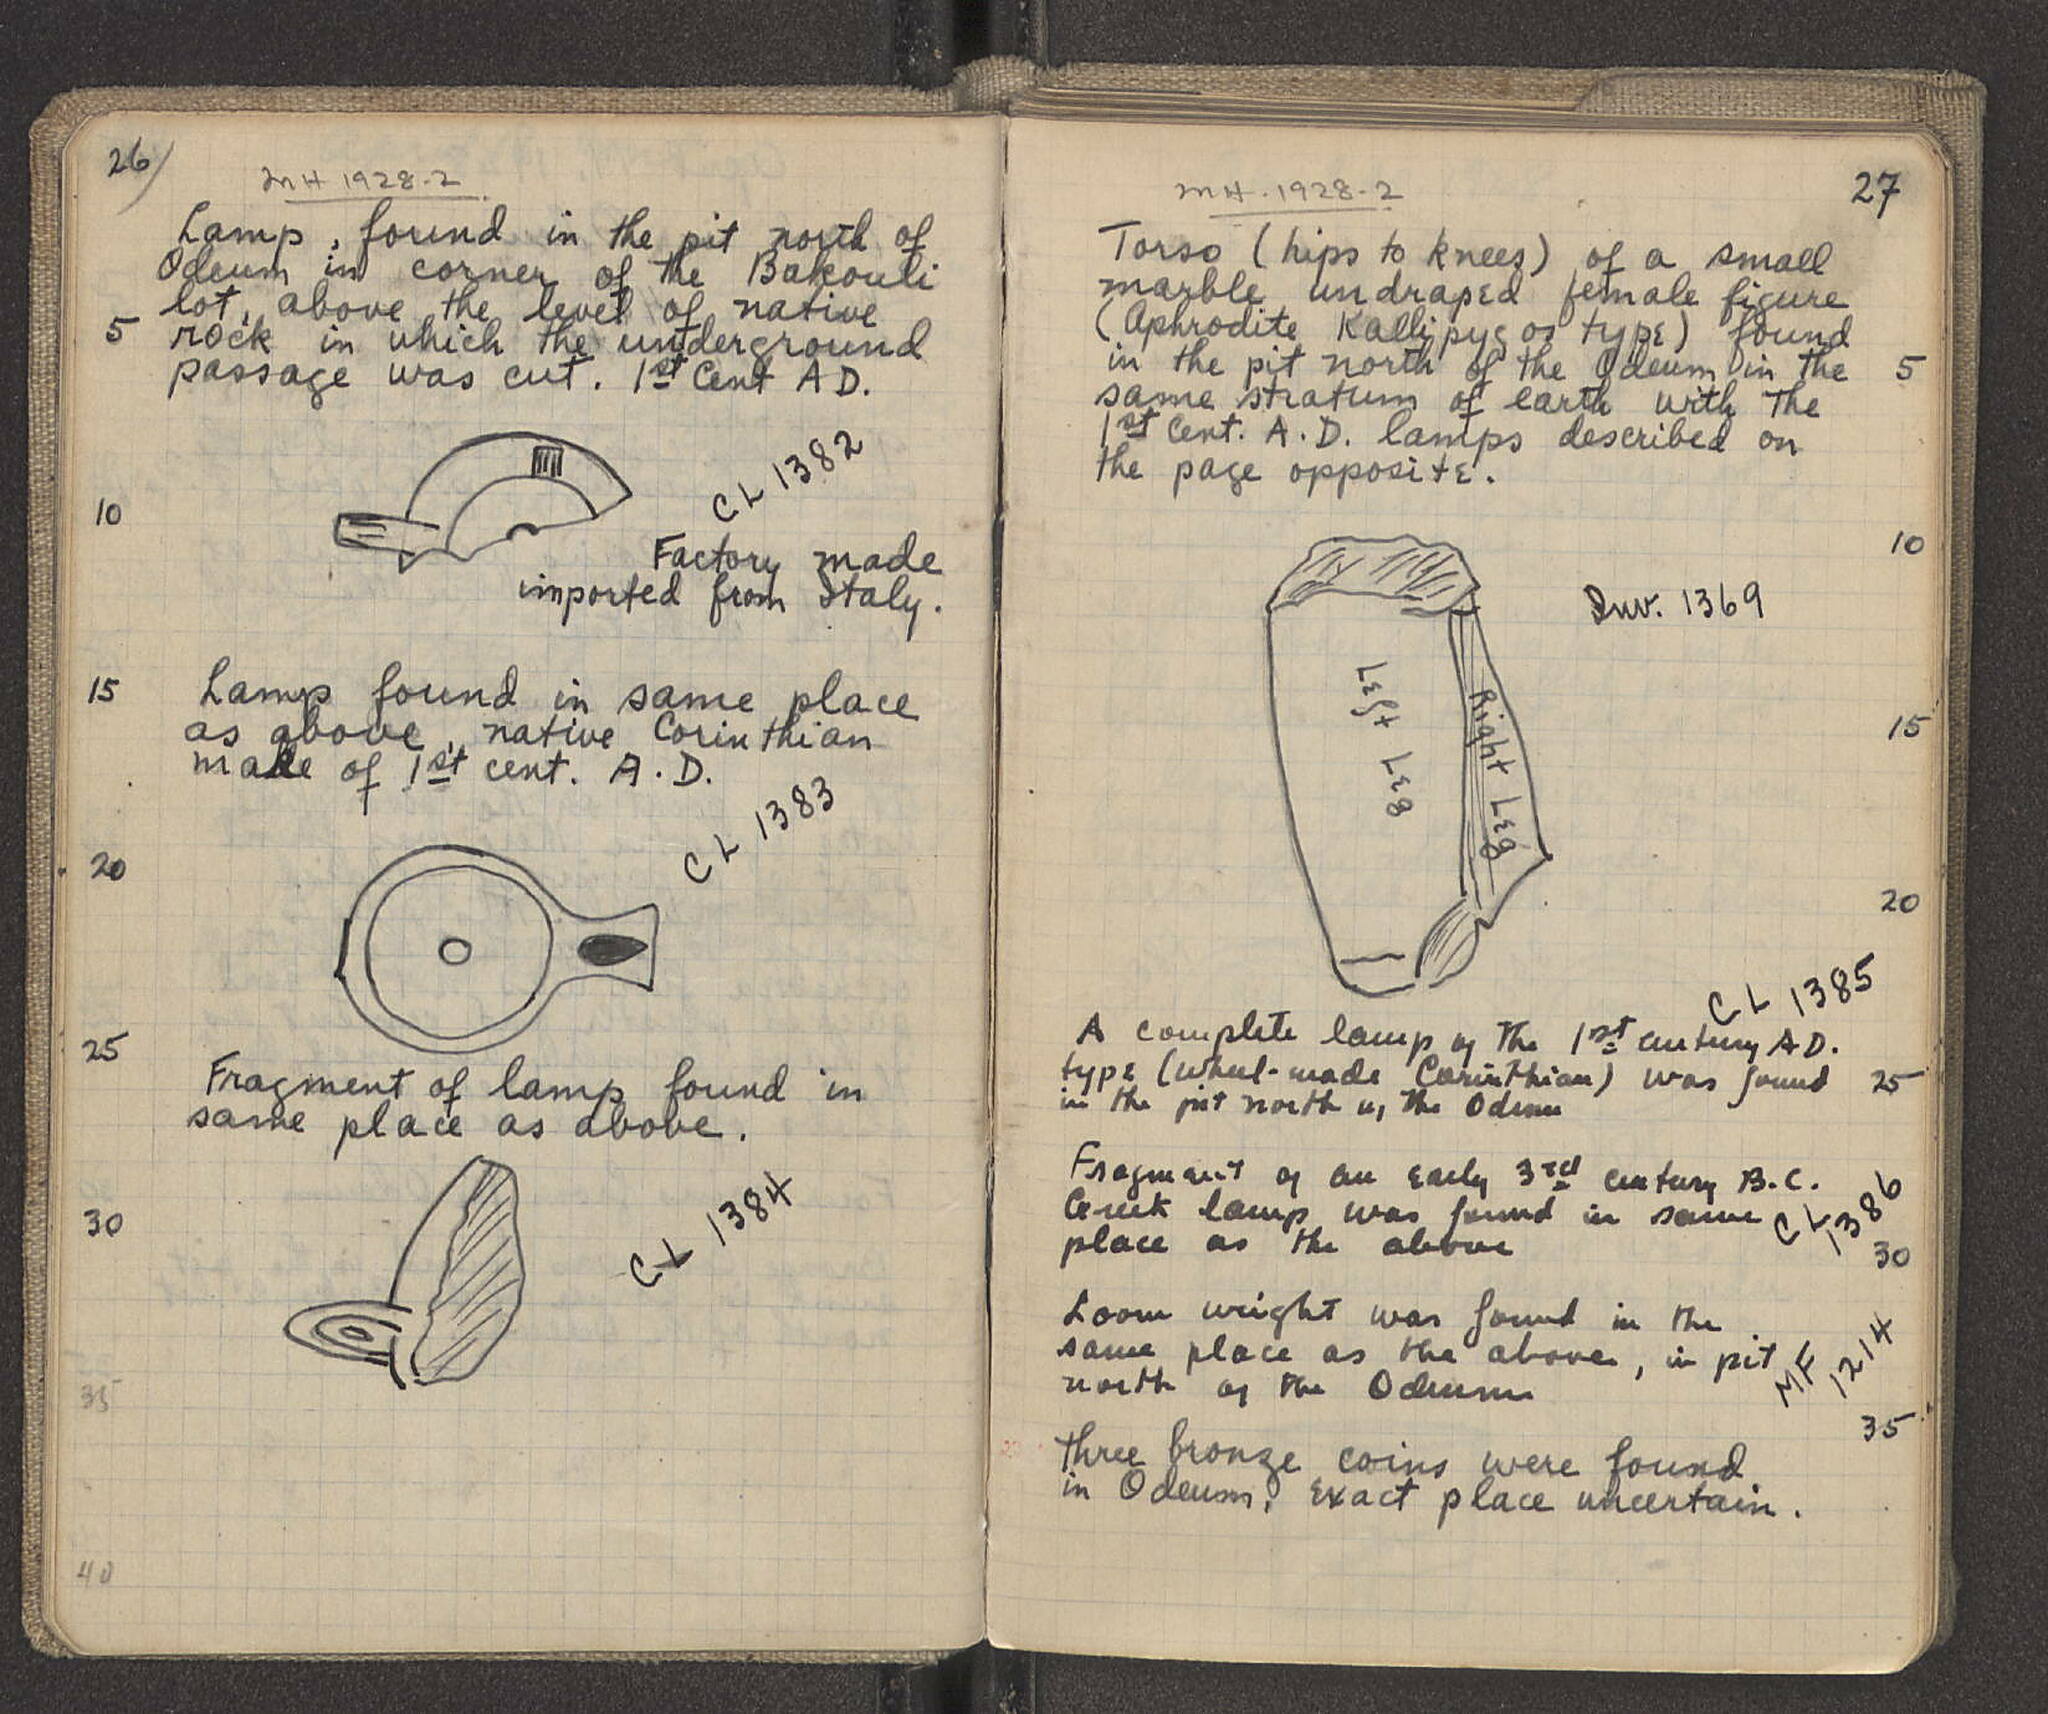 26)
MH 1928-2
Lamp, found in the pit north of
Odeum in corner of the Bakouli
lot, above the level of native
5 rock in which the underground
passage was cut. 1st Cent AD.
CL 1382
10
Factory made
imported from Italy.
15 Lamp found in same place
as above, native Corinthian
make of 1st cent. A.D.
CL 1383
20
25
Fragment of lamp found in
same place as above.
CL 1384
30
35
40
MH. 1928-2
27
Torso (hips to knees) of a small
marble undraped female figure
(Aphrodite Kallipygos type) found
in the pit north of the Odeum in the 5
same stratum of earth with the
1st Cent. A.D. lamps described on
the page opposite.
10
Inv. 1369
Left Leg
Right Leg
15
20
CL 1385
A complete lamp of the 1st century AD.
type (wheel-made Corinthian) was found 25
in the pit north of the Odeum
Fragment of an early 3rd century B.C.
Greek lamp was found in same
place as the above
CL 1386
30
Loom weight was found in the
same place as the above, in pit
north of the Odeum
MF 1214
35
Three bronze coins were found
in Odeum, exact place uncertain.